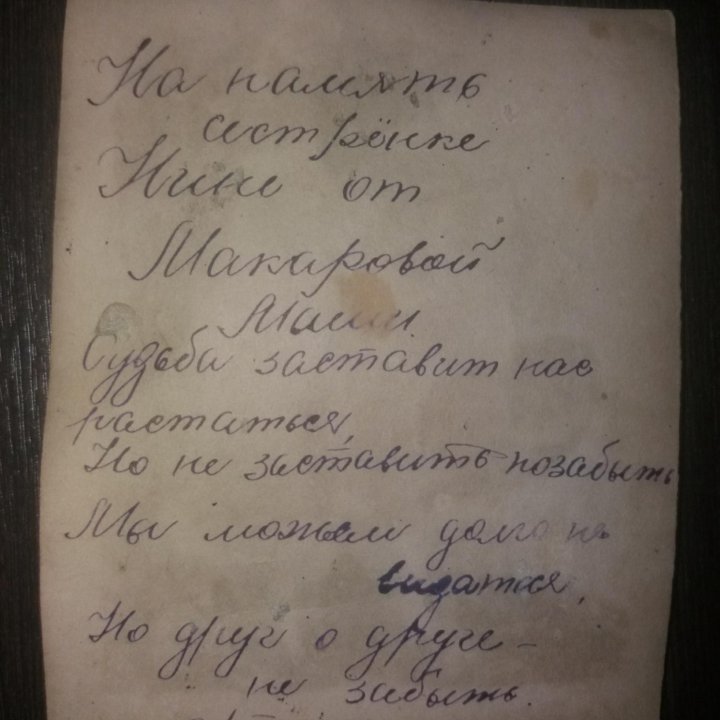 На память
сестрёнке
Нине от
Макаровой
Маши
Судьба заставит нас
растаться,
Но не заставить позабыть
Мы можем долго не
видатся,
Но друг о друге -
не забыть.